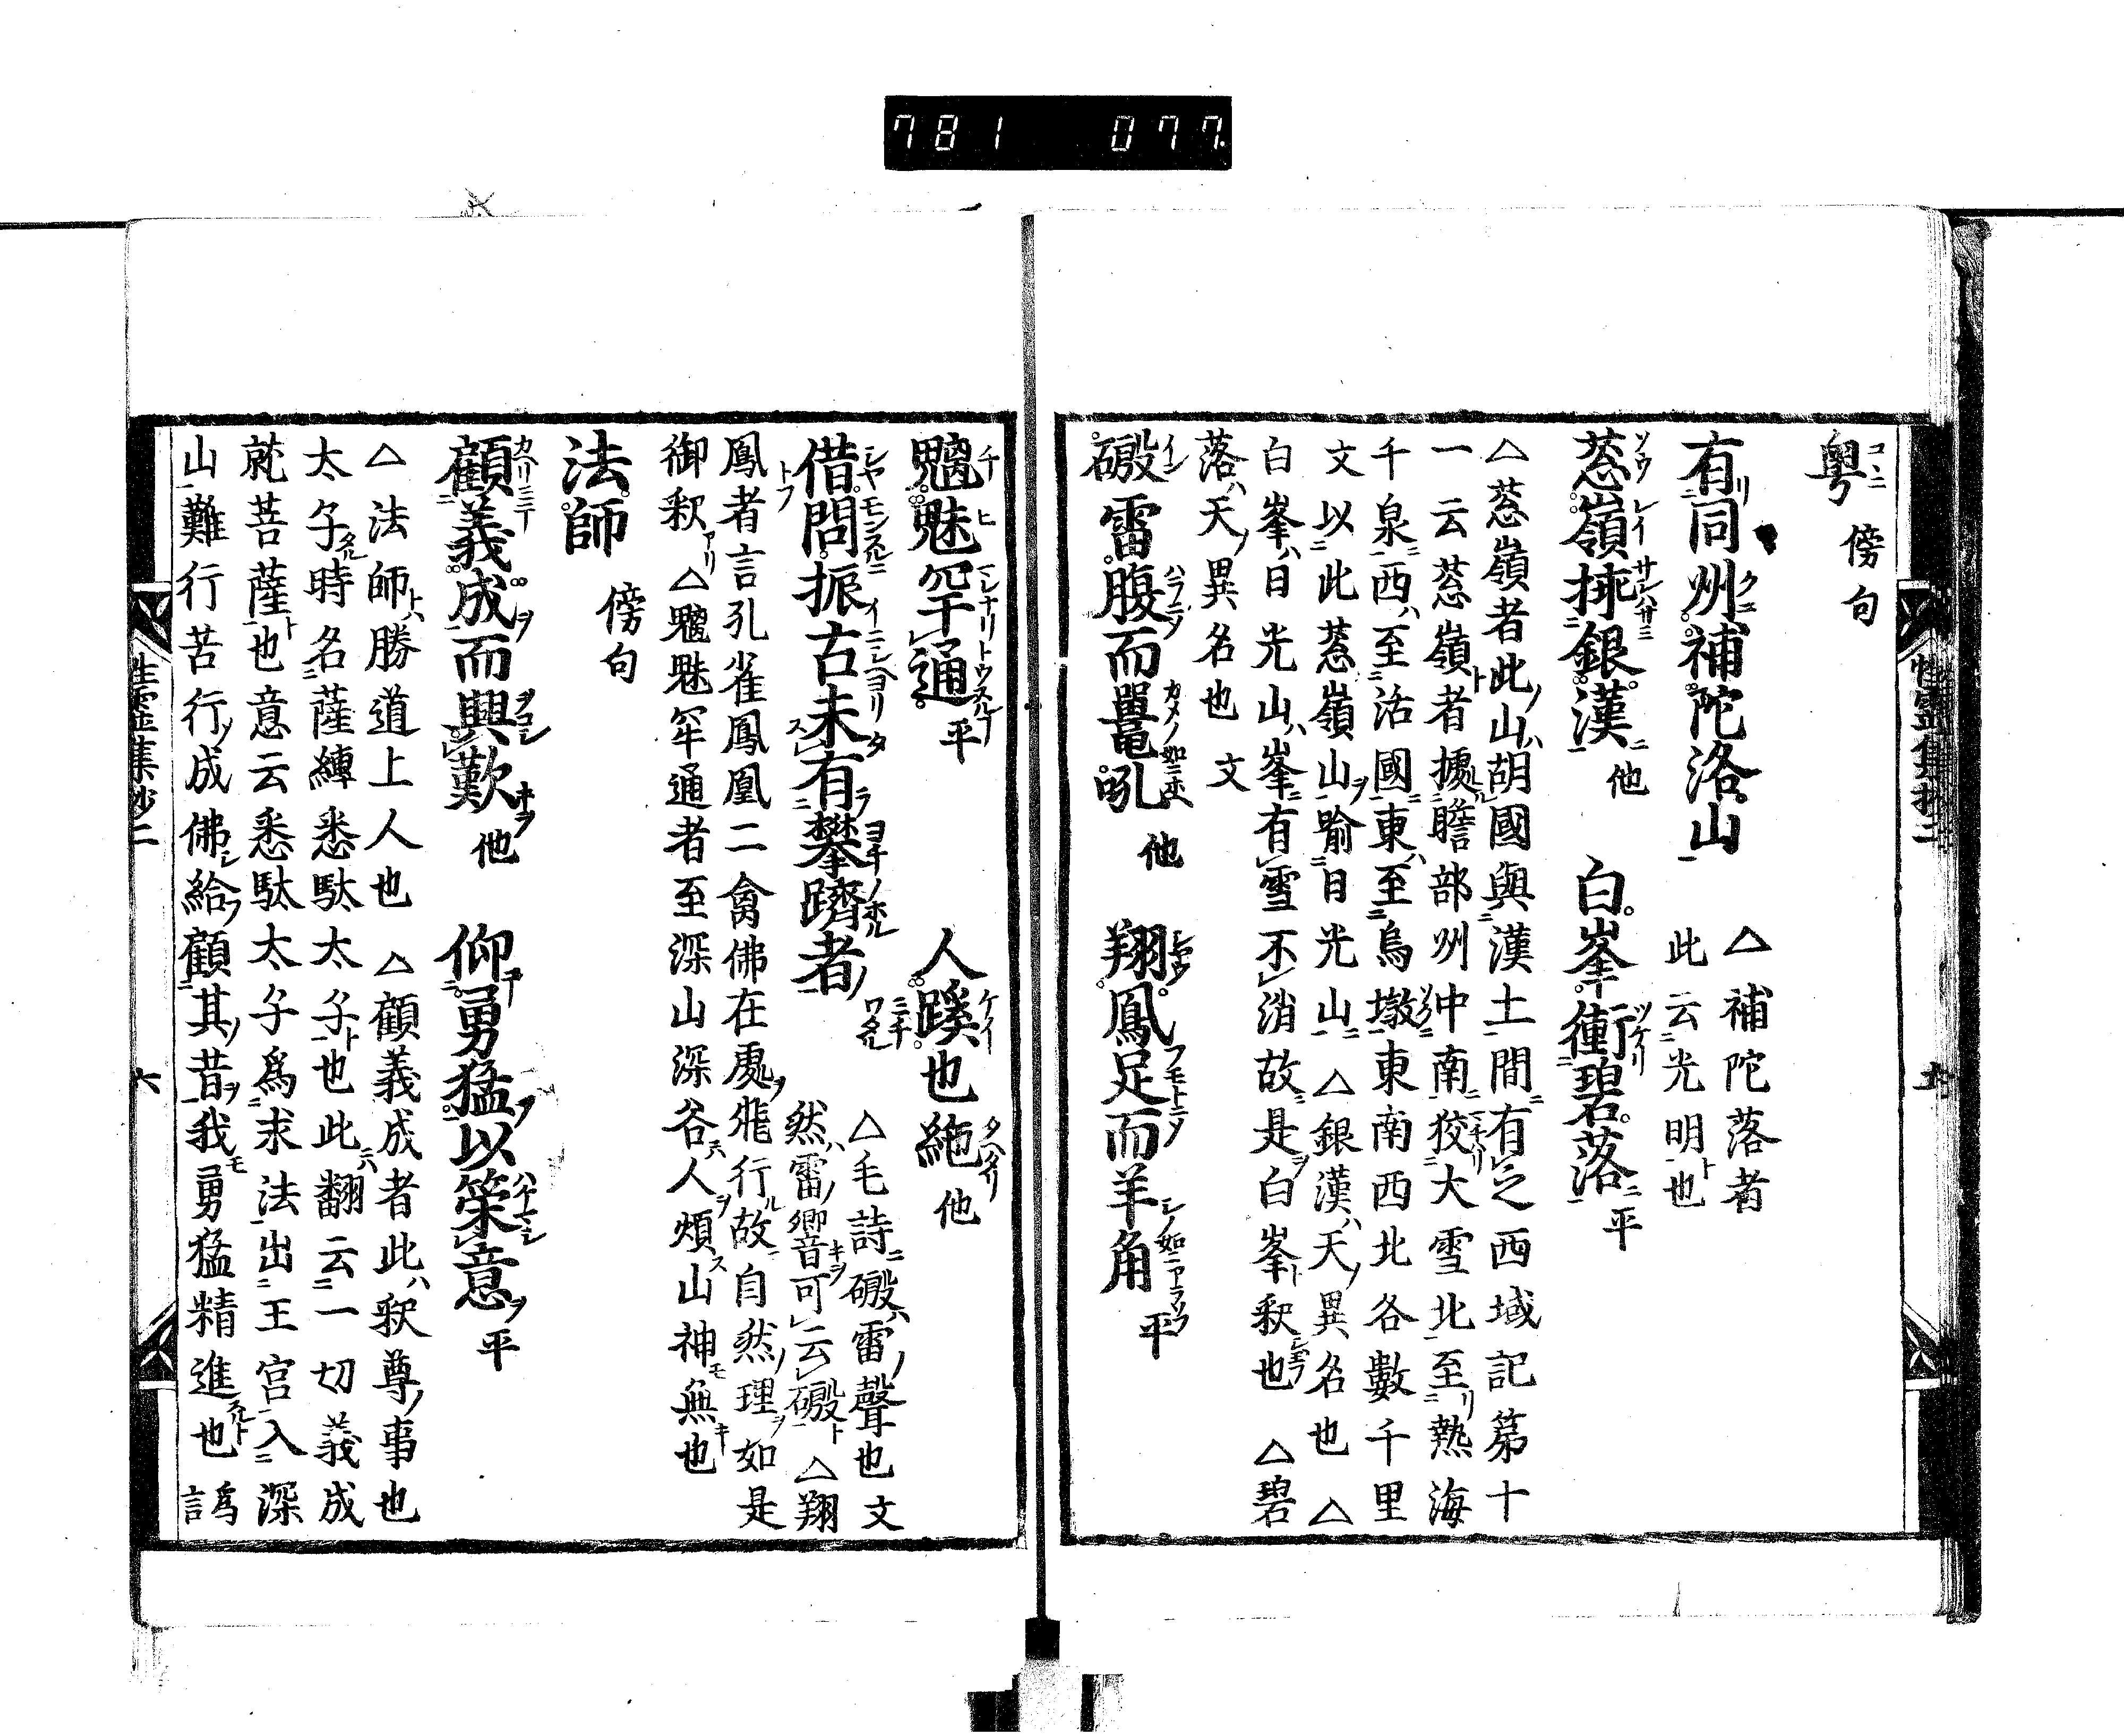 781 077
粤 傍句
有同州補陀洛山 △補陀落者
此云光明也
葱嶺挿銀漢 他 白峯衝碧落 平
△葱嶺者此山胡國與漢土間有之西域記第十
一云葱嶺者據贍部州中南狡大雪北至熱海
千泉西至活國東至烏㙜東南西北各數千里
文以此葱嶺山喻日光山△銀漢天異名也△
白峯日光山峯有雪不消故是白峯釈也△碧
落天異名也文
磤雷腹而鼉吼 他 翔鳳足而羊角 平
性靈集抄二 五
魑魅罕通 平 人蹊也絶 他
借問振古未有攀躋者
△毛詩磤雷聲也文
然雷響可云磤△翔
鳳者言孔雀鳳凰二禽佛在處飛行故自然理如是
御釈△魑魅罕通者至深山深谷人煩山神無也
法師 傍句
顧義成而興歎 他 仰勇猛以策意 平
△法師勝道上人也△顧義成者此釈尊事也
太子時名薩縛悉駄太子也此翻云一切義成
就菩薩也意云悉駄太子爲求法出王宮入深
山難行苦行成佛給顧其昔我勇猛精進也譌
性靈集抄二 六